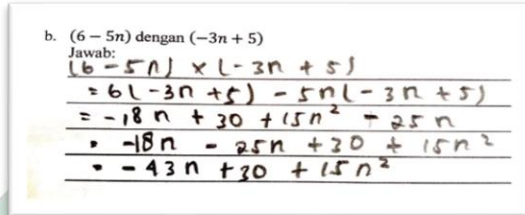 b. (6 – 5n) dengan (−3n + 5)
Jawab:
(6 - 5n) x (-3n + 5)
= 6(-3n + 5) - 5n(-3n + 5)
= -18n + 30 + 15n² - 25n
= -18n - 25n + 30 + 15n²
= -43n + 30 + 15n²